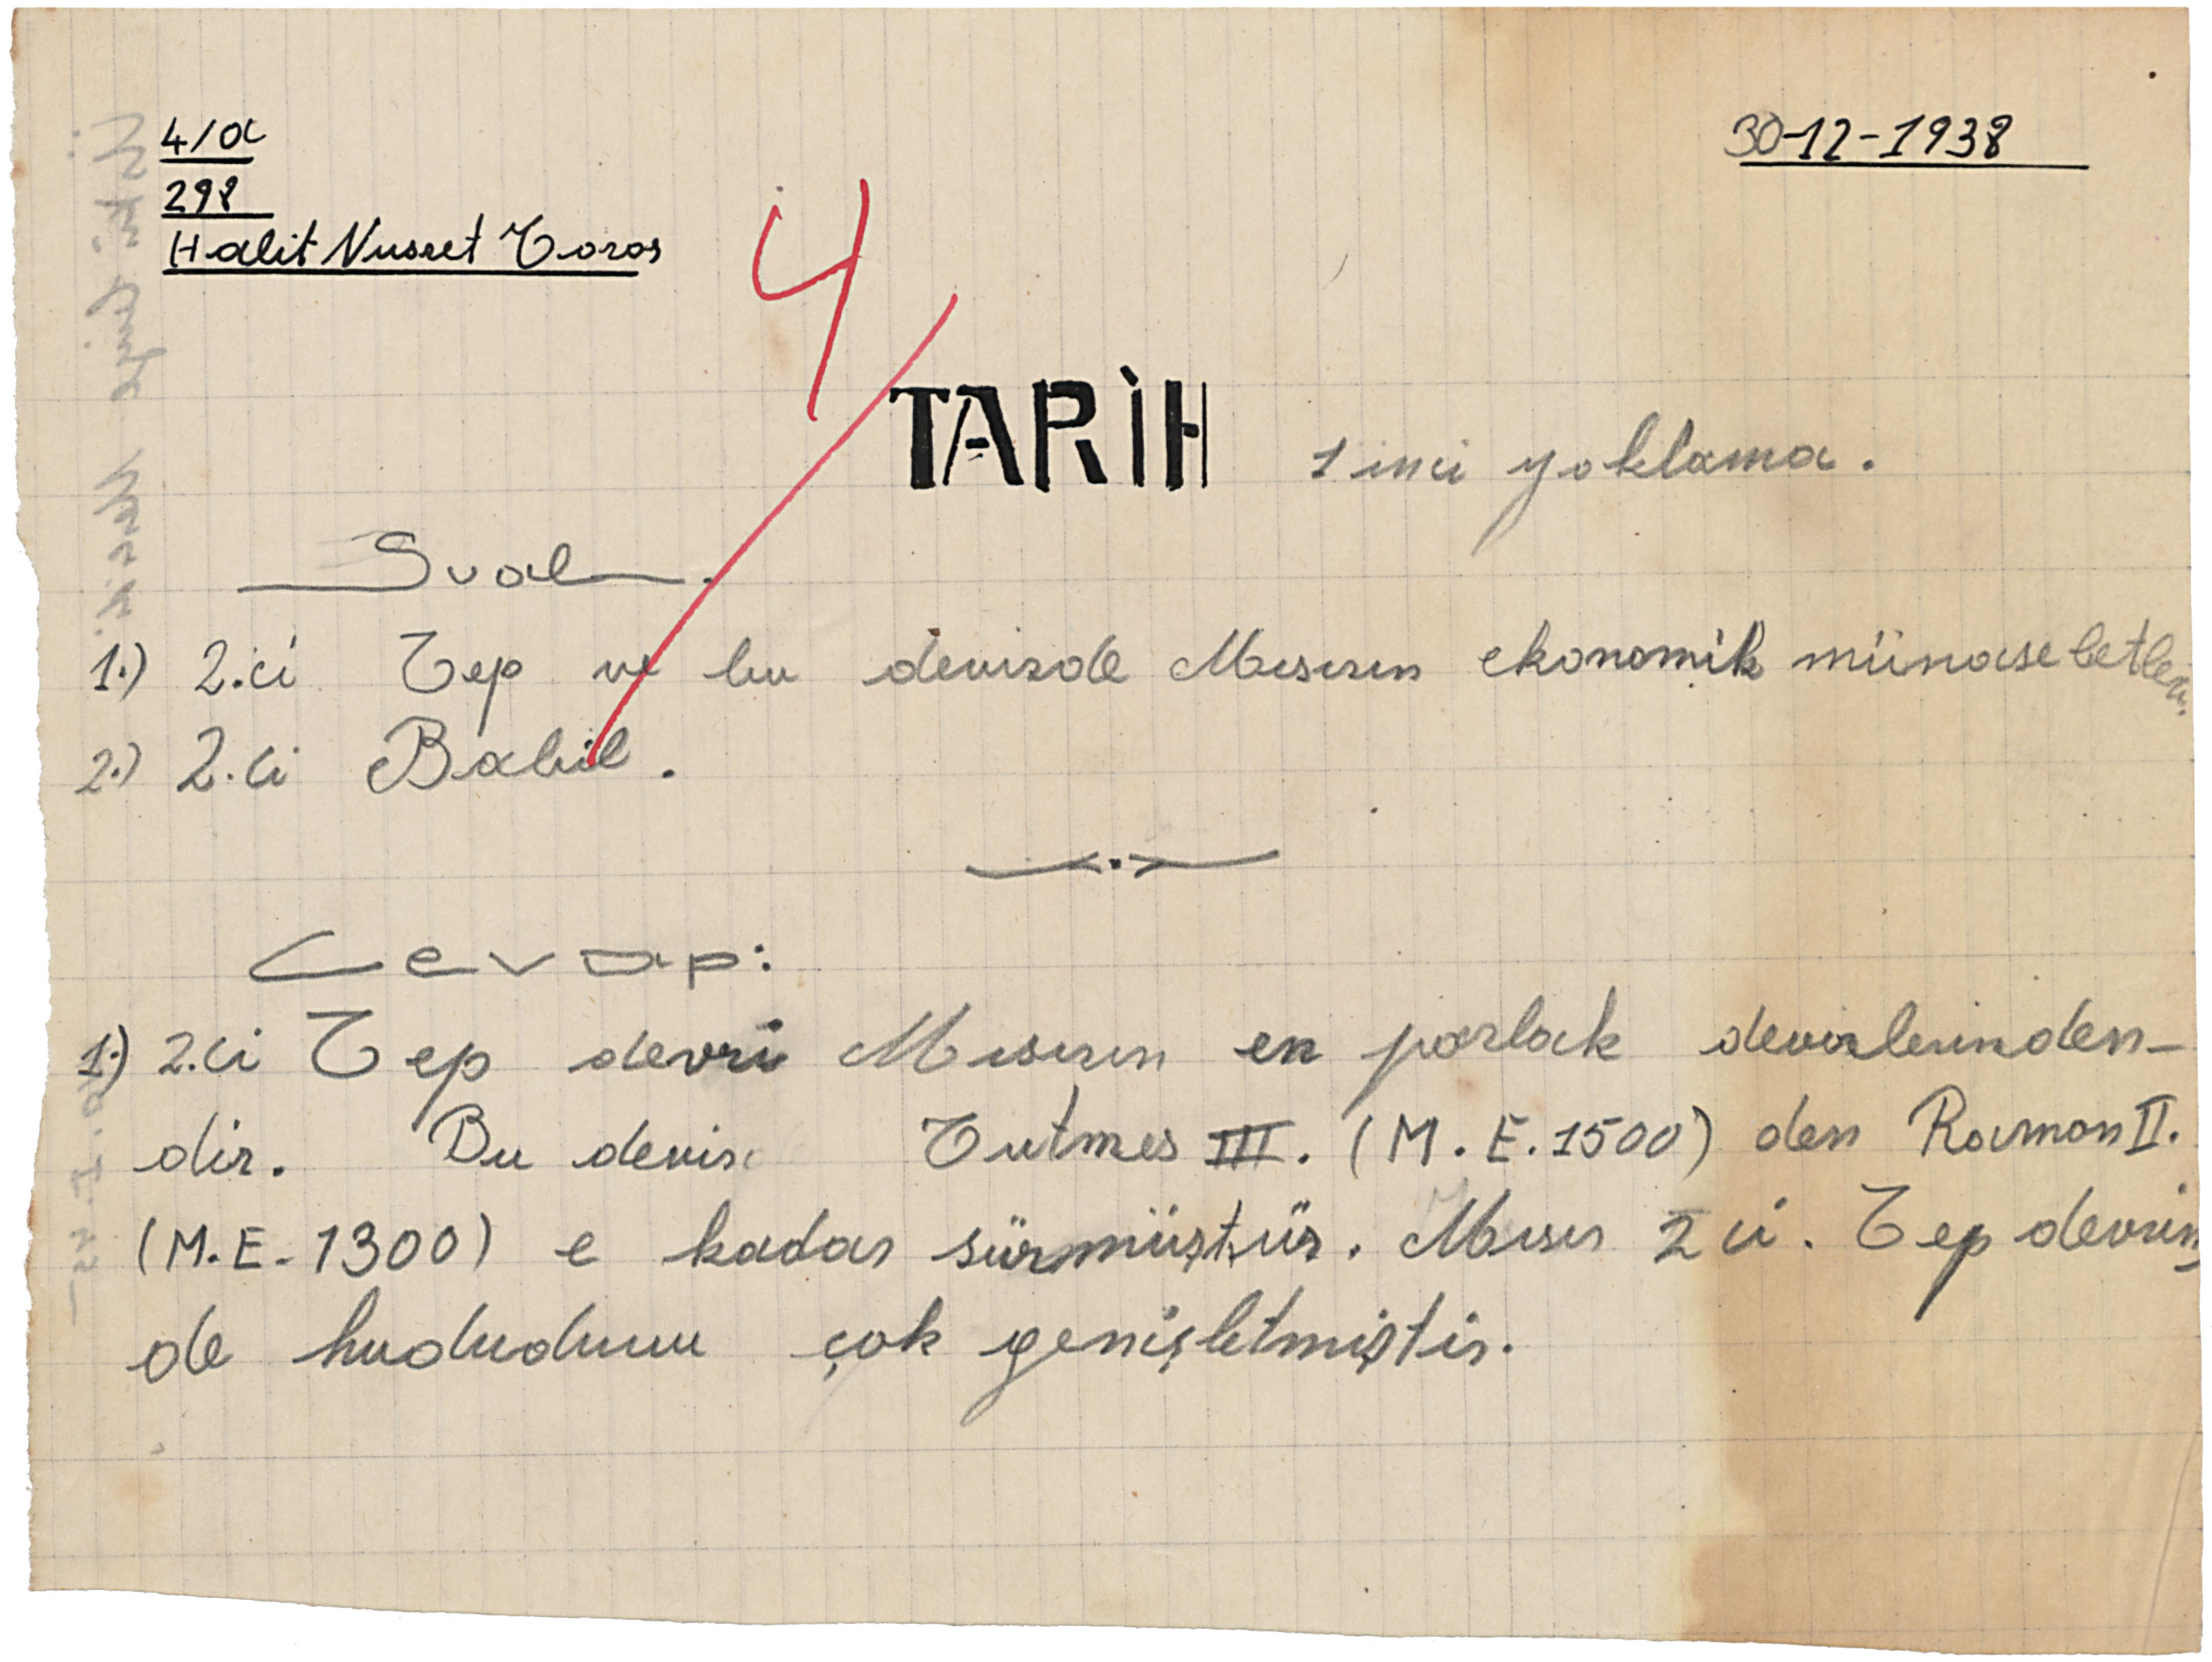 4/a
30-12-1938
298
Halit Nusret Toros
4
TARİH 1 inci yoklama.
Sual.
1.) 2.ci Tep ve bu devirde Mısırın ekonomik münasebetleri.
2.) 2.ci Babil.
Cevap:
1.) 2.ci Tep devri Mısırın en parlak devirlerinden-
dir. Bu devir Tutmes III. (M.E.1500) den Ramon II.
(M.E-1300) e kadar sürmüştür. Mısır 2 ci. Tep devrin
de hududunu çok genişletmiştir.